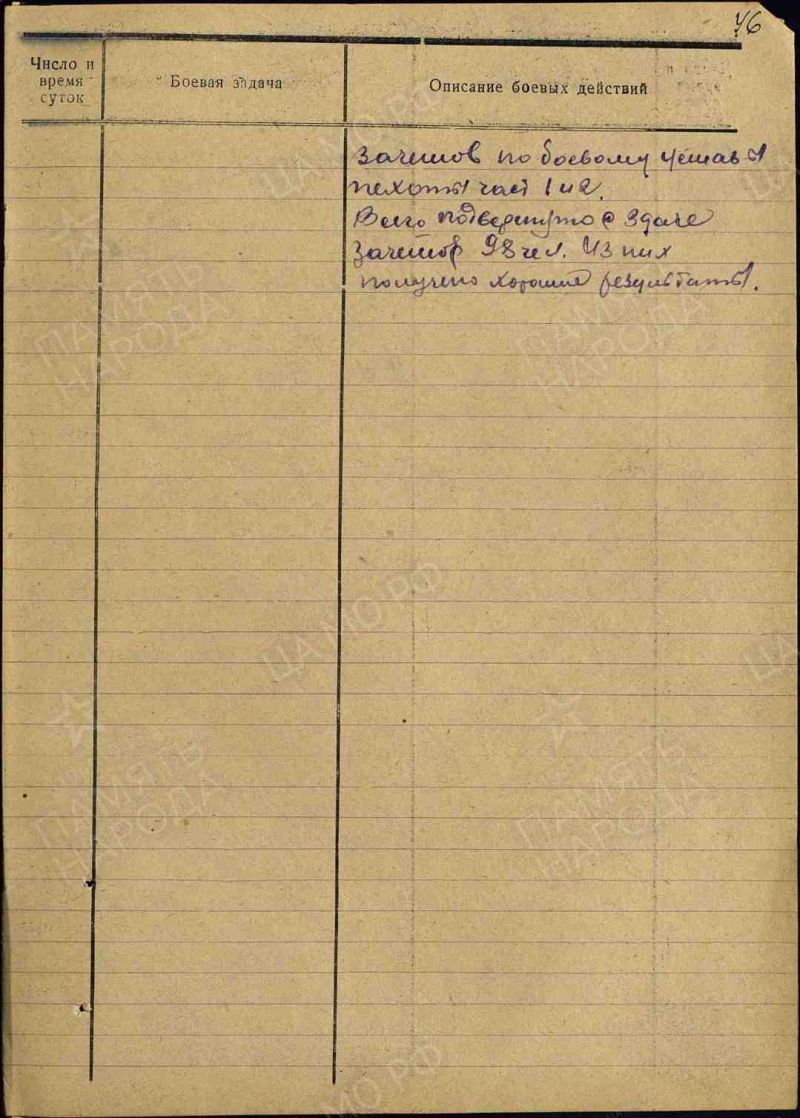 46
Число и
время
суток
Боевая задача
Описание боевых действий
Зачетов по боевому уставу
пехоты част 1 и 2.
Всего подвергнуто сдаче
Зачетов 98 чел. Из них
получено хорошие результаты.
ЦА МО РФ
ПАМЯТЬ
НАРОДА